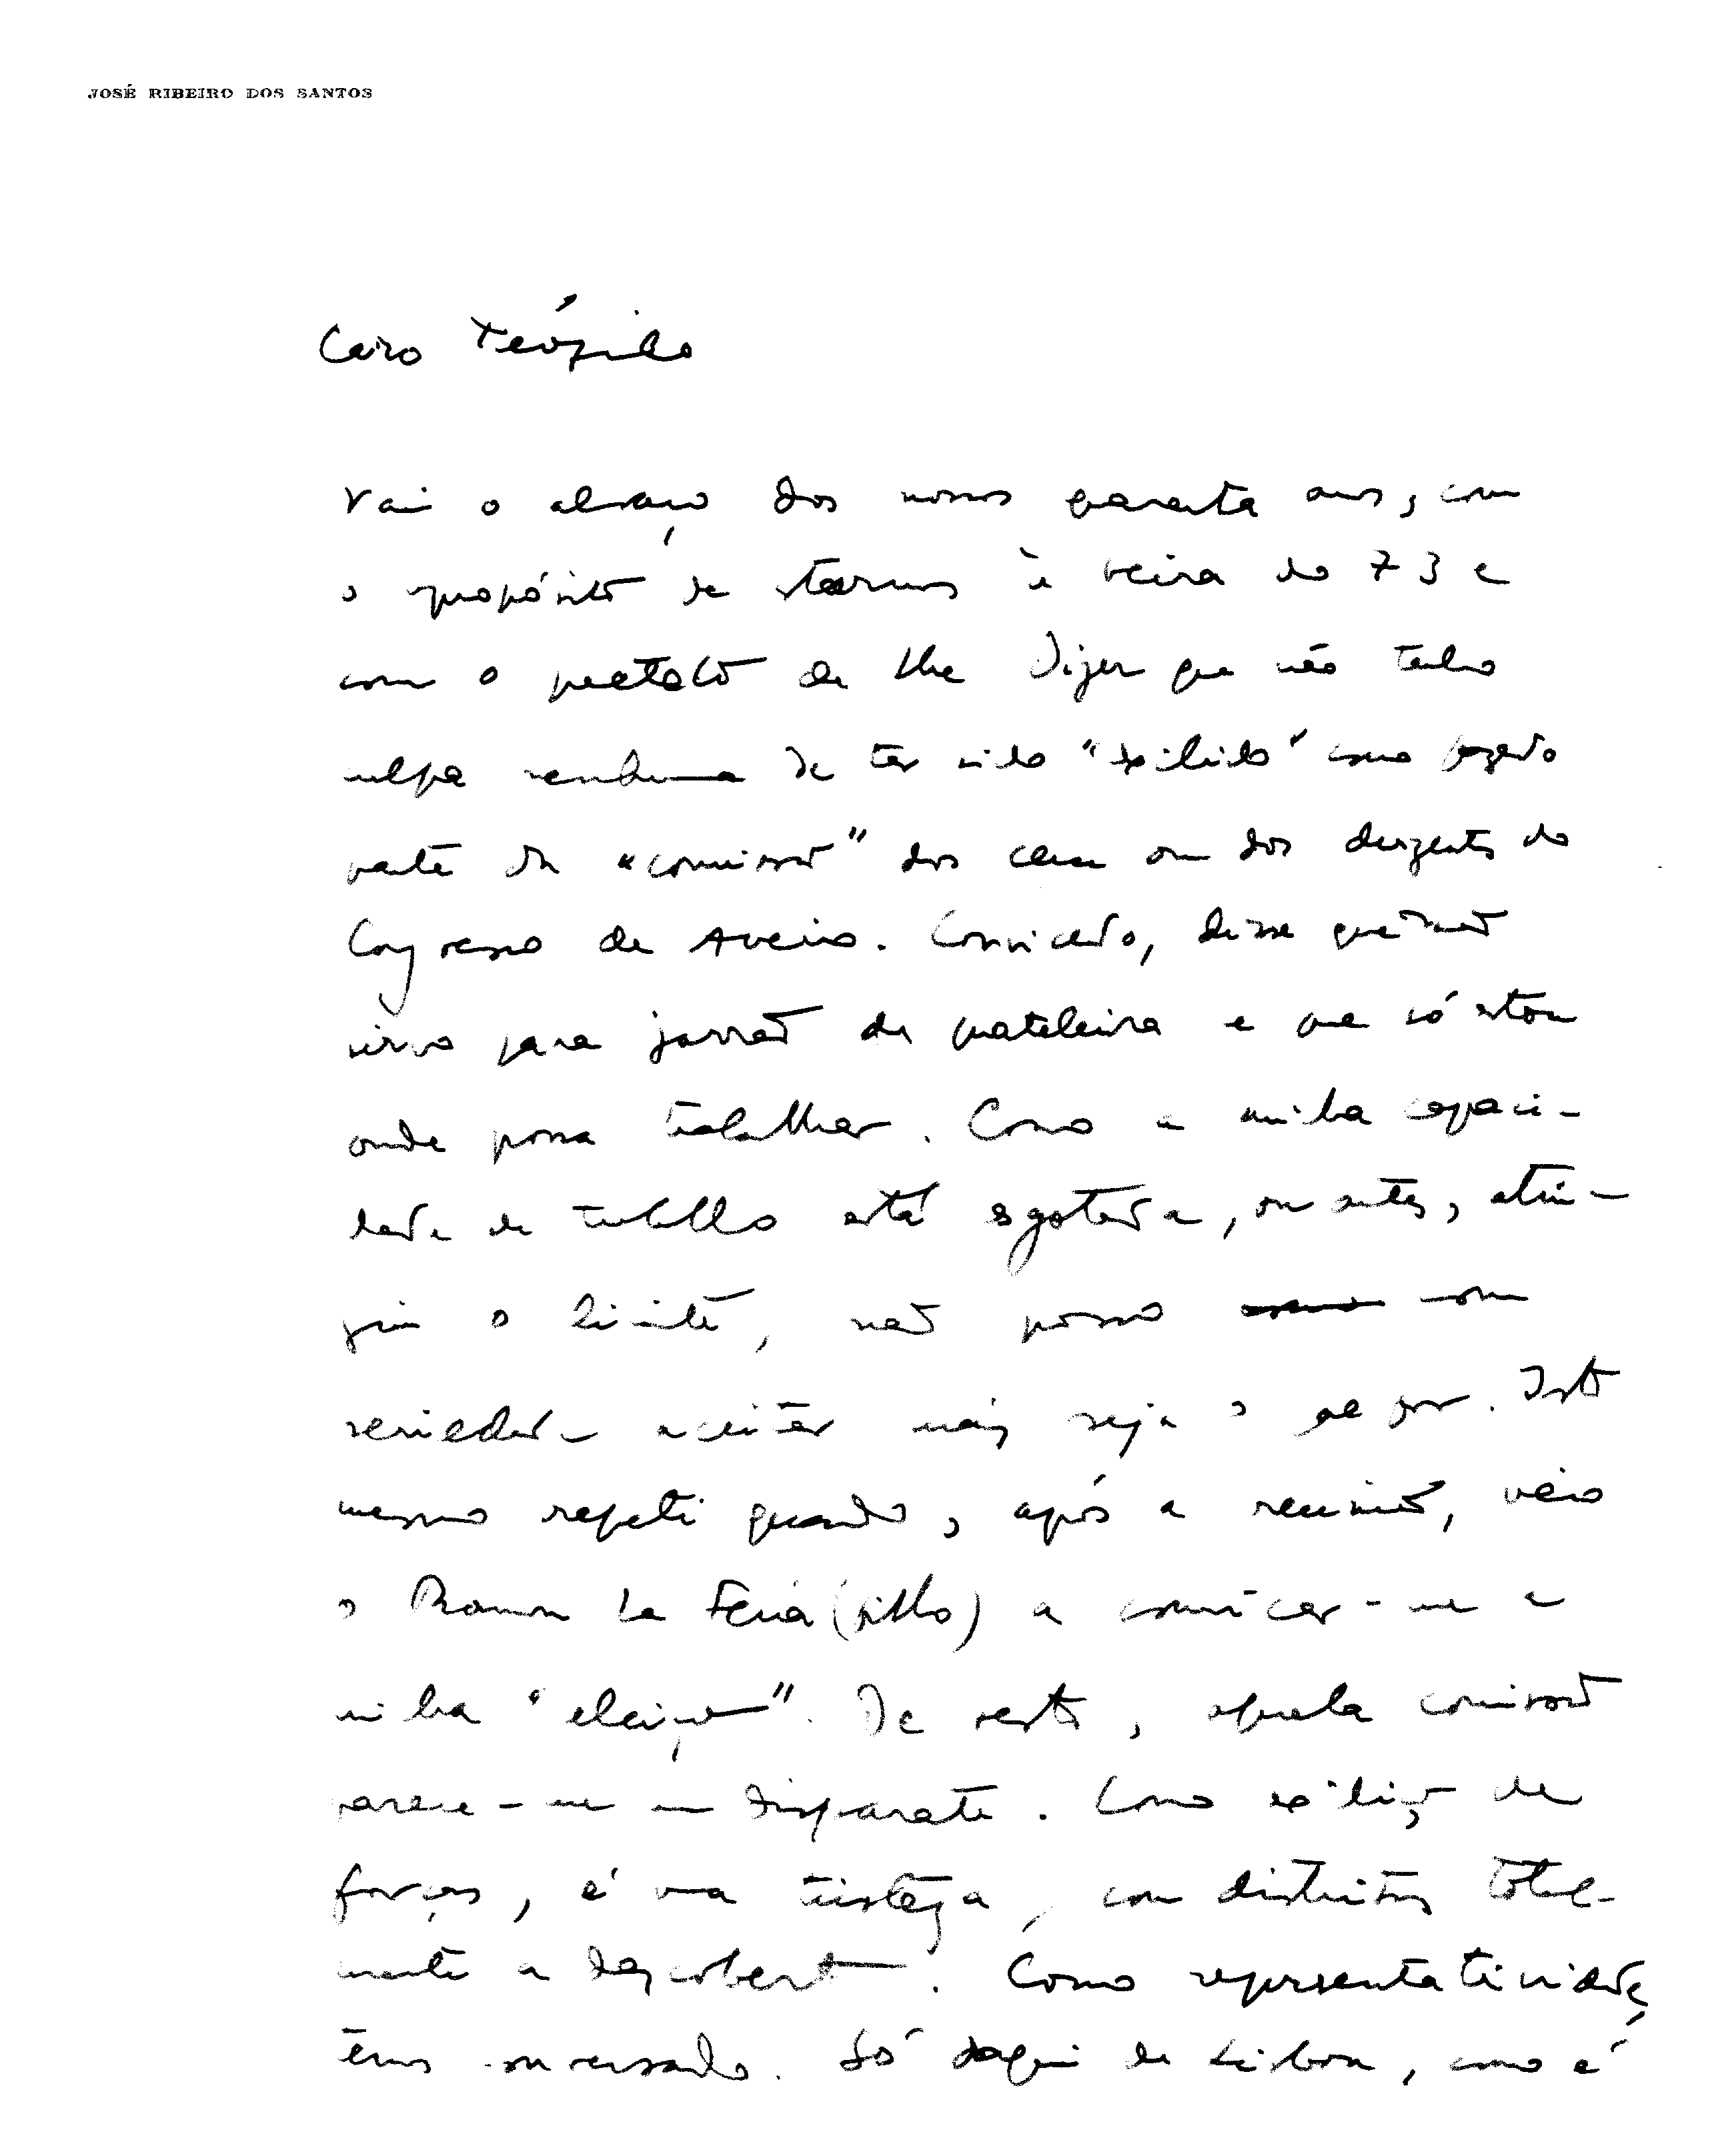 JOSÉ RIBEIRO DOS SANTOS
Caro Teófilo
Vai o abraço dos nossos quarenta anos, com
o propósito de estarmos à beira do 73 e
com o pretexto de lhe dizer que não tenho
culpa nenhuma de ter sido "exibido" como fazendo
parte da "comissão" dos cem ou dos dirigentes do
Congresso de Aveiro. Convidado, disse que não
sirvo para jarrão de prateleira e que só estou
onde possa trabalhar. Como a minha capaci-
dade de trabalho está esgotada, ou antes, atin-
giu o limite, não posso com
seriedade aceitar mais seja o que for. Isto
mesmo repeti quando, após a reunião, veio
o Ramon La Feria (filho) a comunicar-me a
minha "eleição". De resto, aquela comissão
parece-me um disparate. Como exibição de
forças, é uma tristeza, com distritos total-
mente a descoberto. Como representatividade,
temos conversado. Só daqui de Lisboa, como é